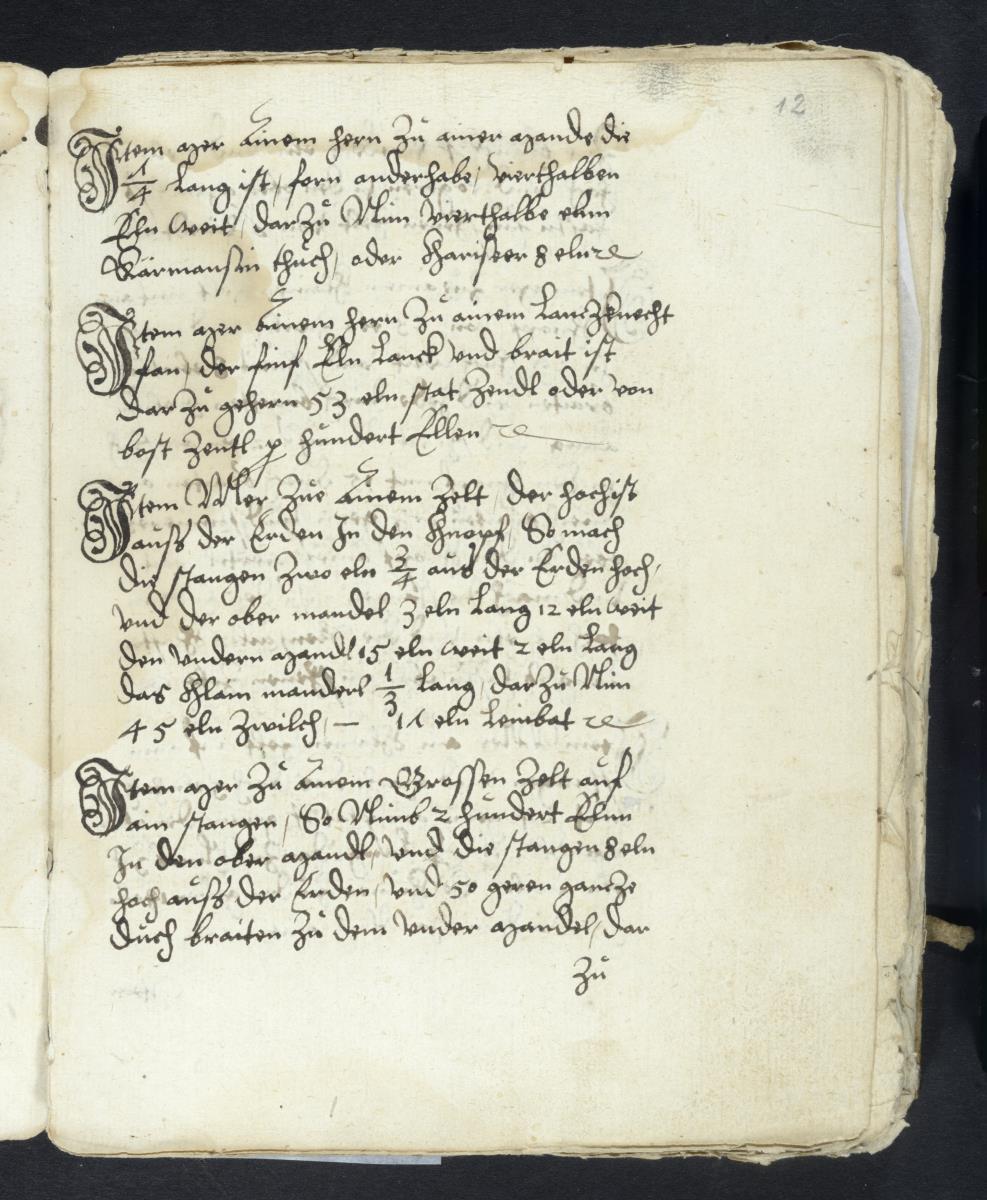 12
Item mer Ainem hern Zu ainer mande die
1/4 Lang ist, forn anderhabe, vierthalben
Eln weit, dar Zu Nim vierthalbe elnn
Karmansin thuch, oder Harißer 8 eln
Item mer Ainem hern Zu ainem Lanczknecht
fan, der finf Eln Lanck vnd brait ist
dar Zu gehern 53 eln stat Zendl oder von
bost Zentl p hundert Ellen
Item Mer Zue Ainem Zelt, der hoch ist
auß der Erden In den Knopf, So mach
die stangen Zwo eln 2/4 aus der Erden hoch,
vnd der ober mandel 3 eln Lang 12 eln weit
den vndern mandl 15 eln weit 2 eln Lang
das Klain manderl 1/3 Lang, dar Zu Nim
45 eln Zwilch, — 14 eln Leinbat
Item mer Zu Ainem Grossen Zelt auf
ain stangen, So Nimb 2 hundert Elnn
In den ober mandl, vnd die stangen 8 eln
hoch auß der Erden, vnd 50 geren gancze
duch braiten Zu dem vnder mandel, dar
Zu